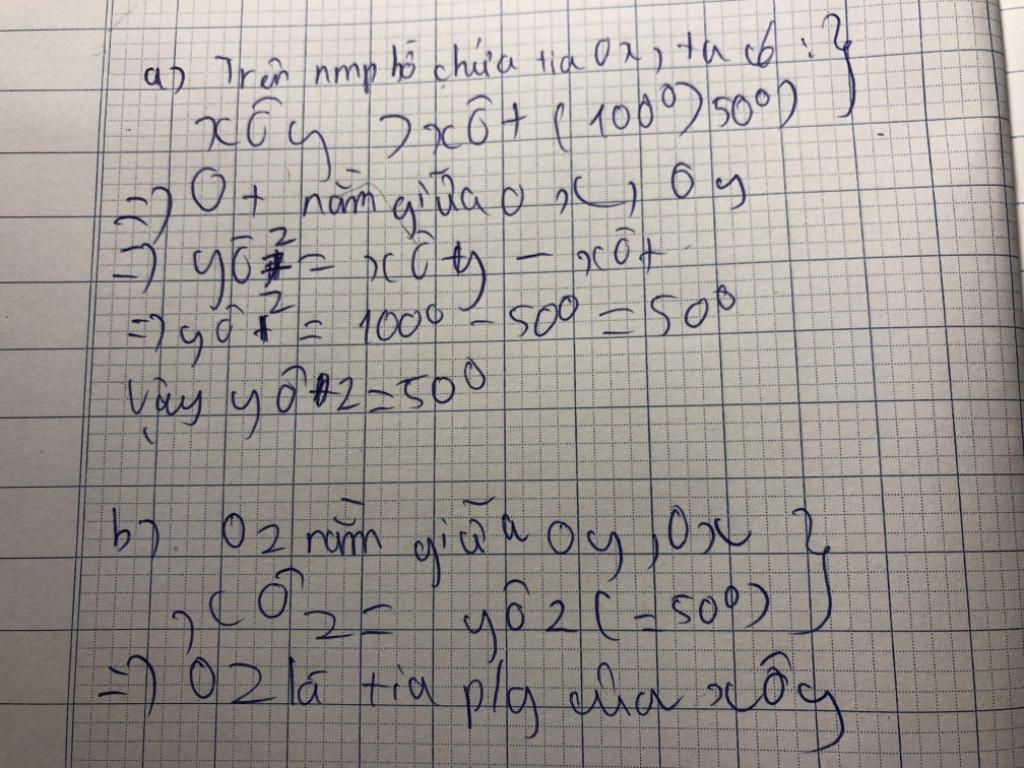 a) Trên nmp bờ chứa tia Ox, ta có : }
xÔy > xÔt (100⁰ > 50⁰)
=> Ot nằm giữa Ox, Oy
=> yÔz = xÔy - xÔt
=> yÔz = 100⁰ - 50⁰ = 50⁰
Vậy yÔz = 50⁰
b) Oz nằm giữa Oy, Ox }
xÔz = yÔz (= 50⁰)
=> Oz là tia p/g của xÔy